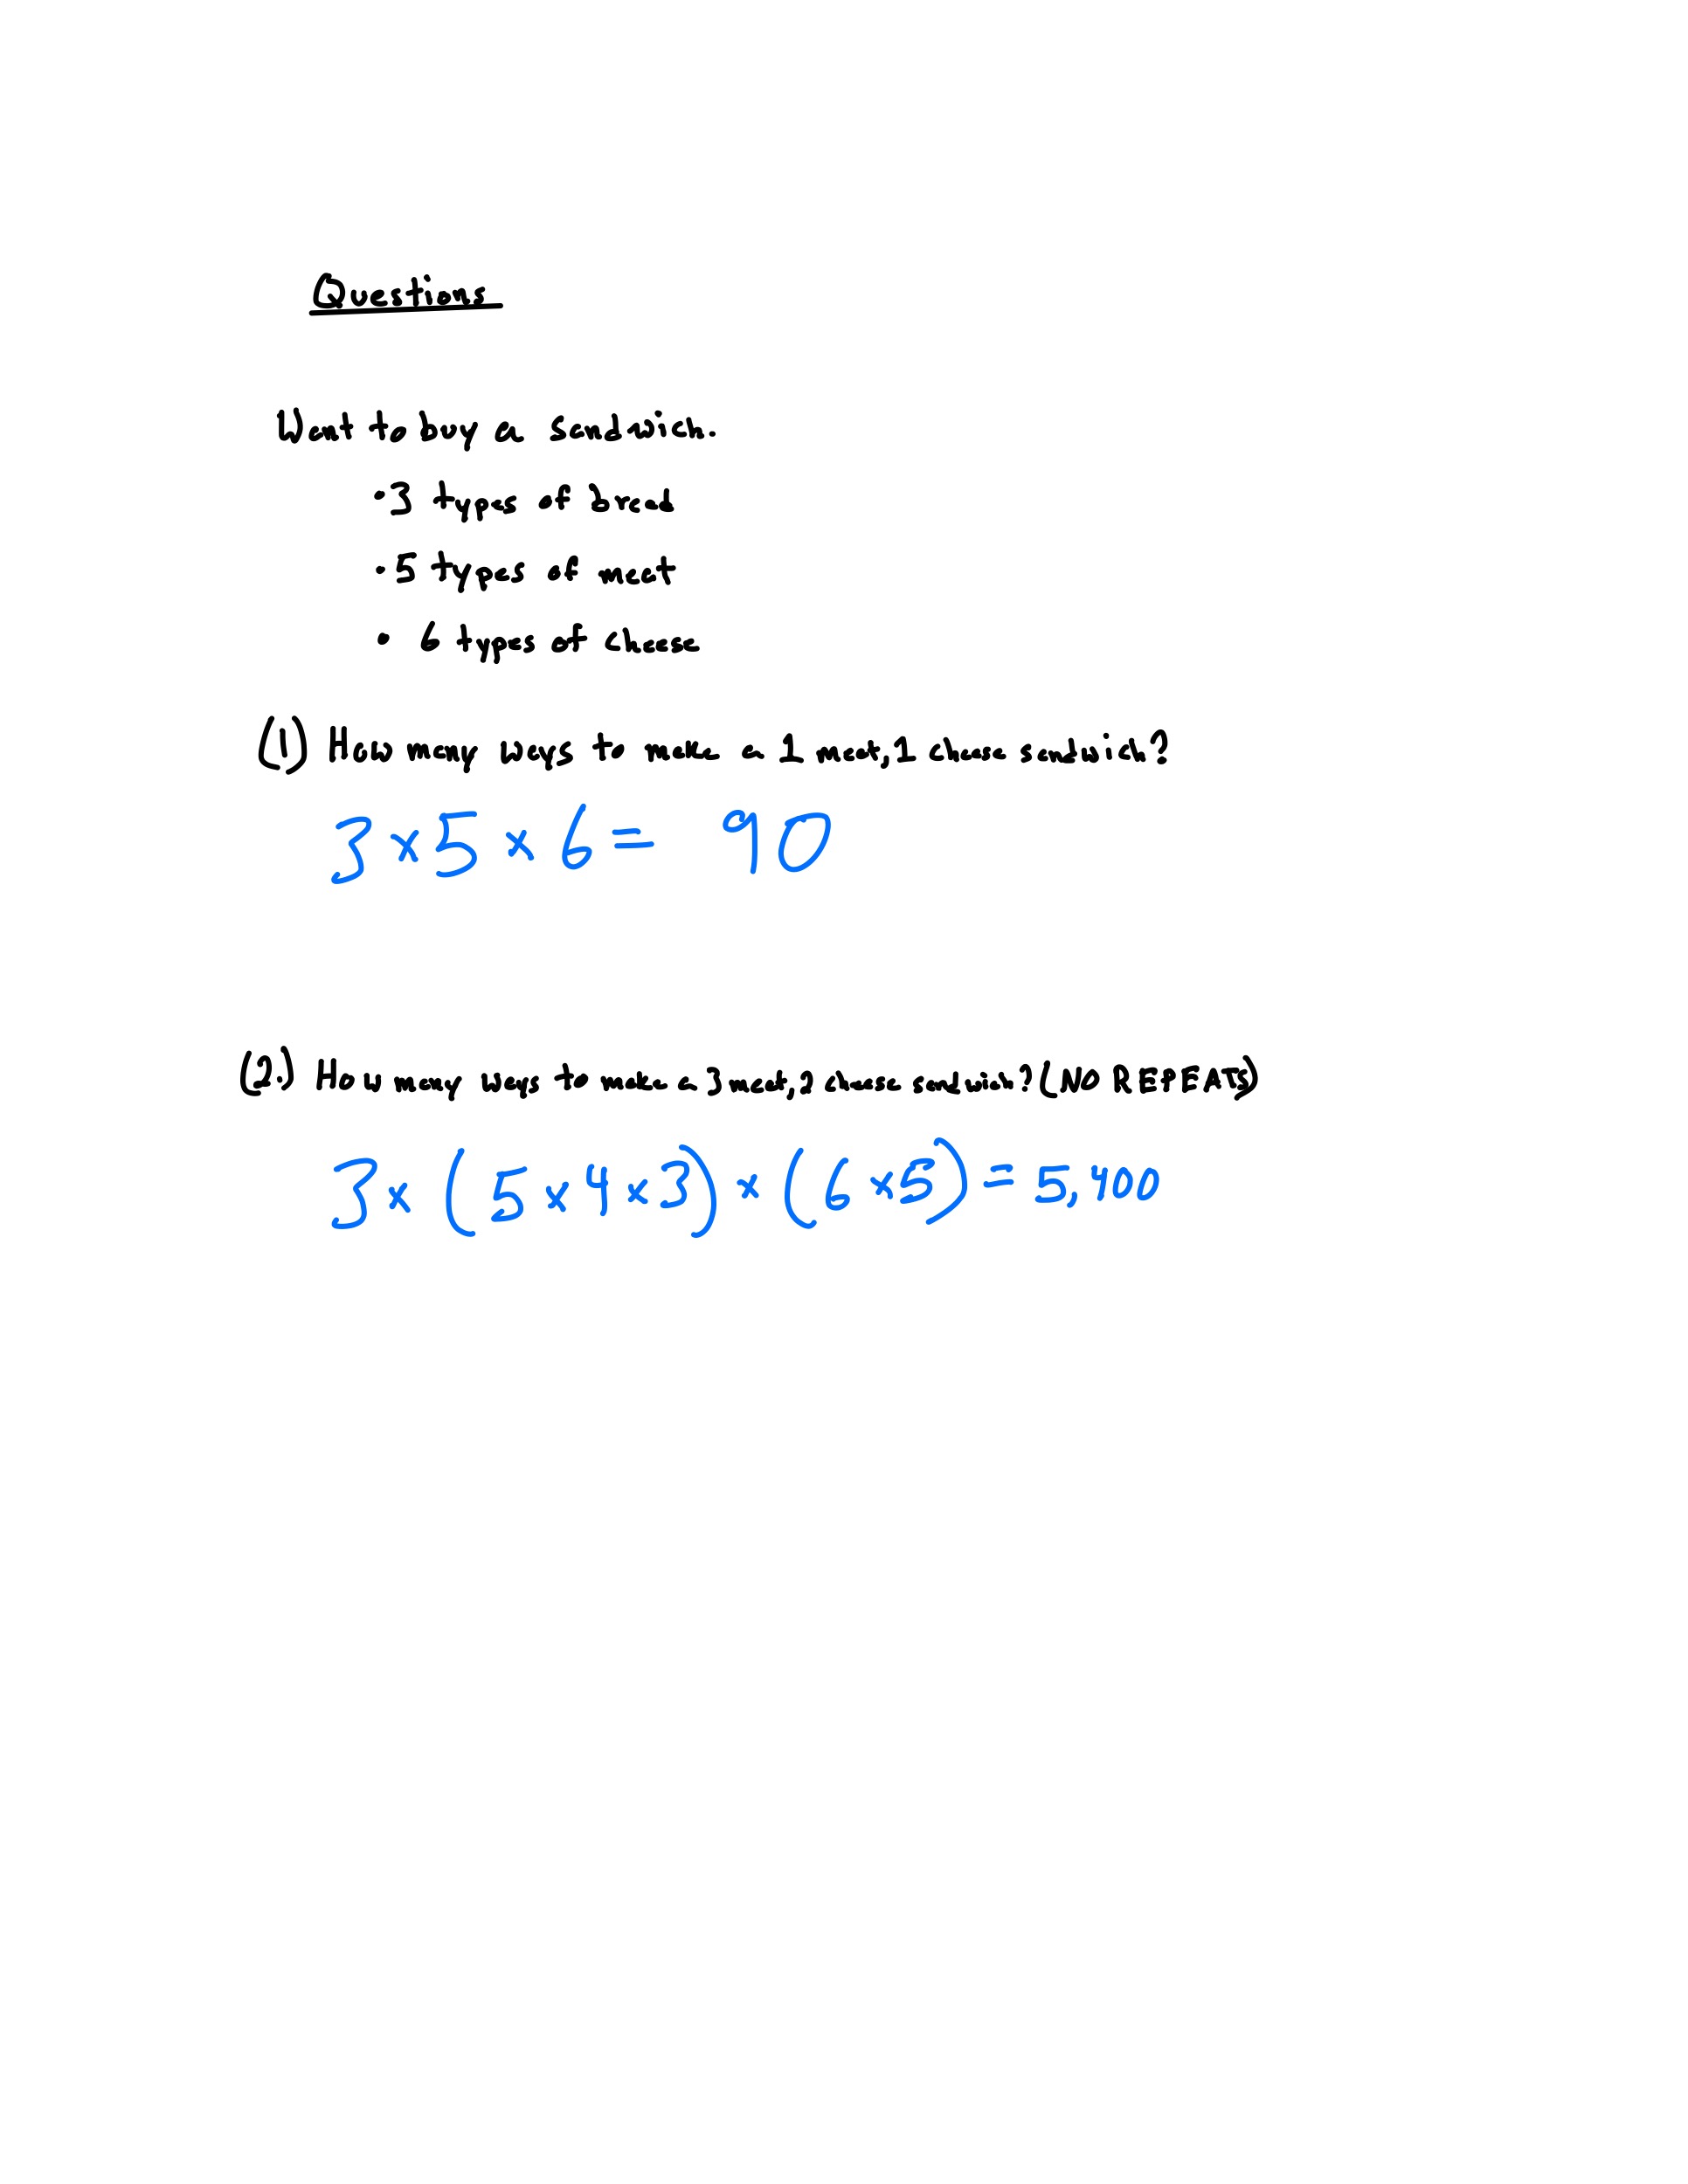 Questions
Want to buy a sandwich.
•3 types of bread
•5 types of meat
• 6 types of cheese
(1) How many ways to make a 1 meat, 1 cheese sandwich?
3 × 5 × 6 = 90
(2.) How many ways to make a 3 meat, 2 cheese sandwich? (NO REPEATS)
3 × (5 × 4 × 3) × (6 × 5) = 5,400